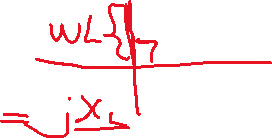 WL
= jXL